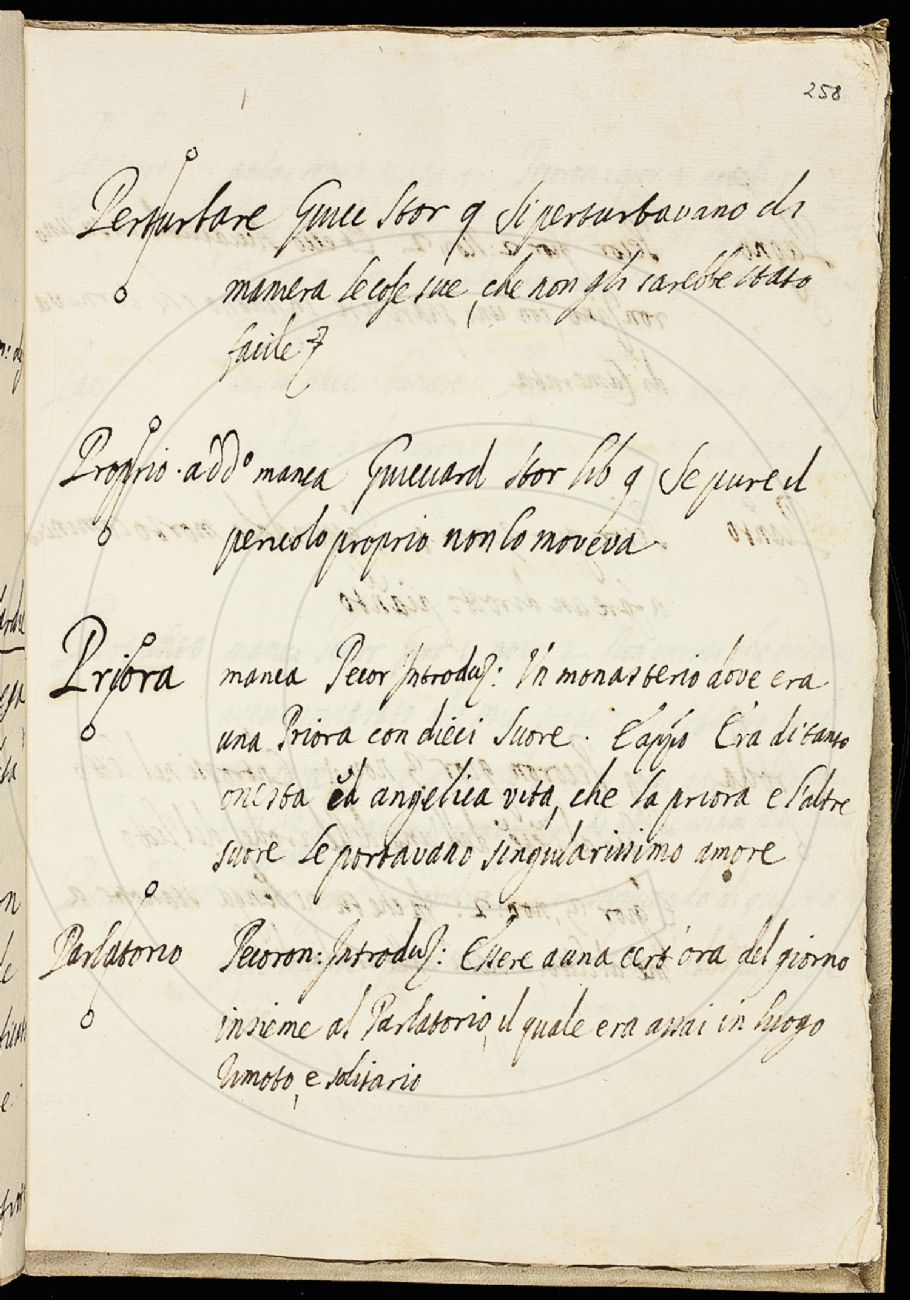 258
Perturbare Guicc Stor 9 Si perturbavano di
maniera le cose sue, che non gli sarebbe stato
facile
Proprio. addo manca Guicciard Stor lib 9 Se pure il
pericolo proprio non lo moveva
Priora manca Pecor Introduz: In monasterio dove era
una Priora con dieci Suore. E appo Era di tanto
onesta ed angelica vita, che la priora e l'altre
suore le portavano singularissimo amore
Parlatorio Pecoron: Introduz: Essere a una cert'ora del giorno
insieme al Parlatorio, il quale era assai in luogo
rimoto, e solitario